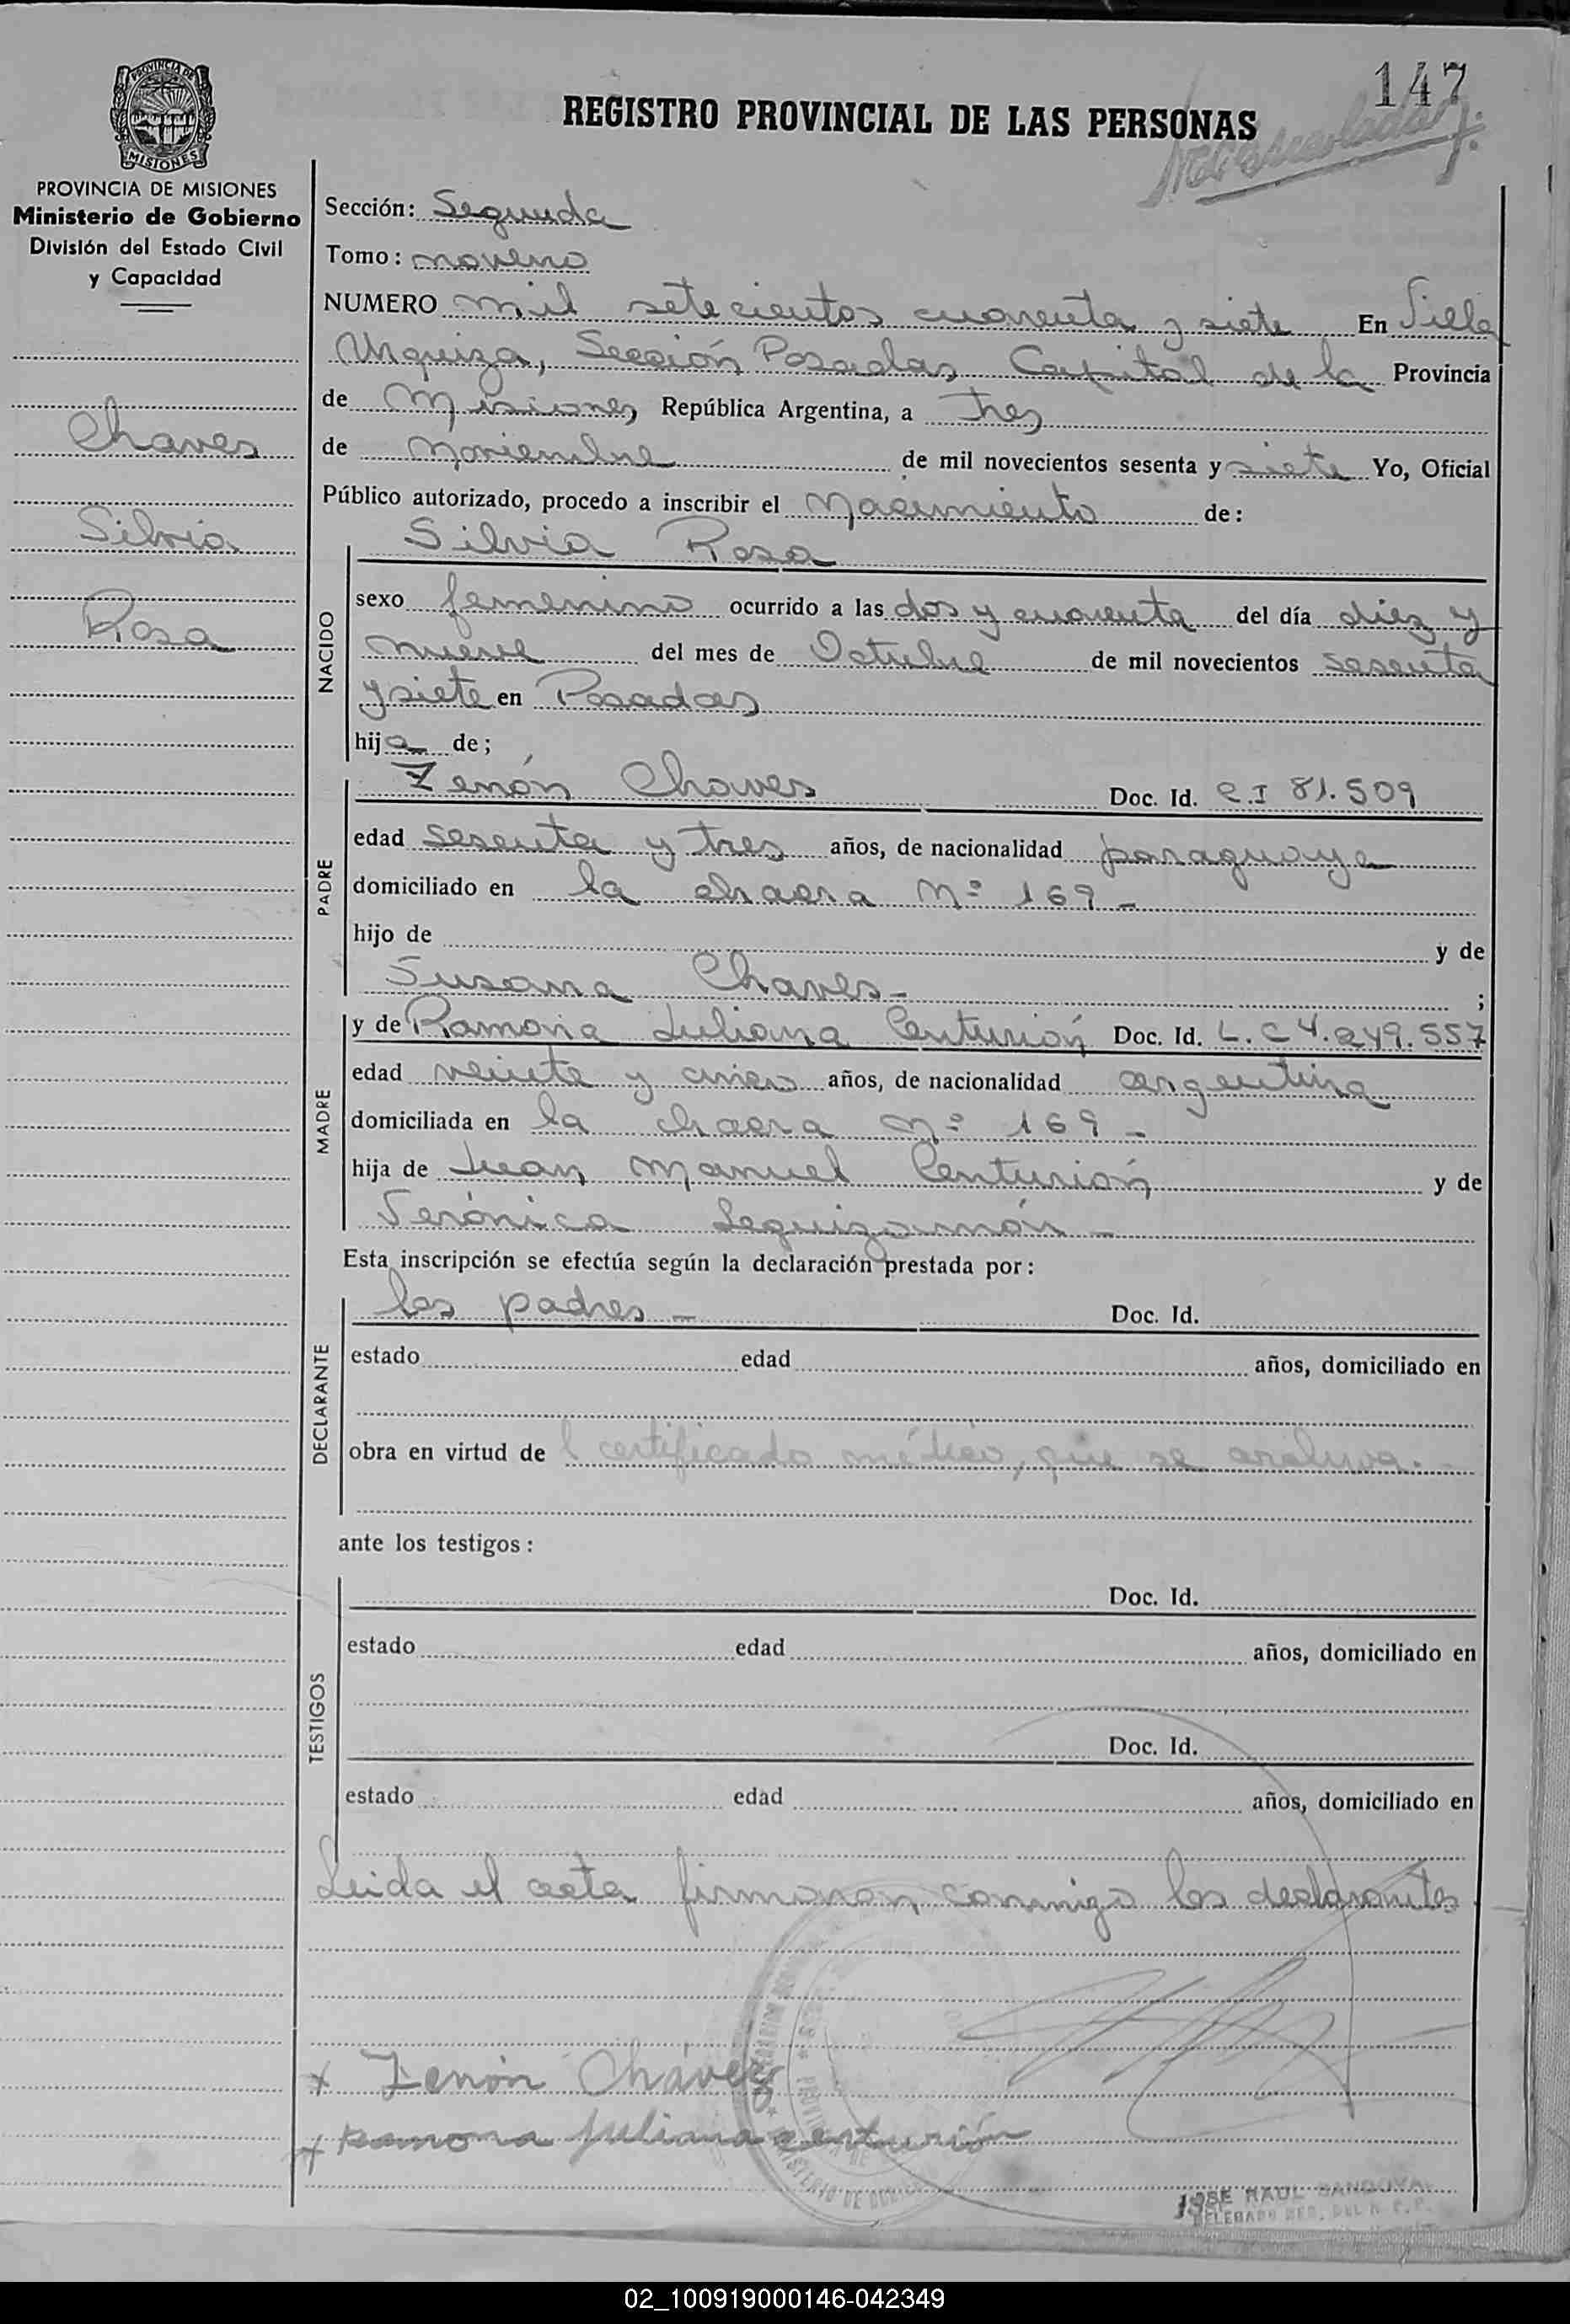 147
REGISTRO PROVINCIAL DE LAS PERSONAS
PROVINCIA DE
MISIONES
PROVINCIA DE MISIONES
Ministerio de Gobierno
División del Estado Civil
y Capacidad
Chaves
Silvia
Rosa
Sección: Segunda
Tomo: noveno
NUMERO mil setecientos cuarenta y siete En Villa
Urquiza, Sección Posadas, Capital de la Provincia
de Misiones, República Argentina, a tres
de Noviembre de mil novecientos sesenta y siete Yo, Oficial
Público autorizado, procedo a inscribir el Nacimiento de:
Silvia Rosa
NACIDO
sexo femenino ocurrido a las dos y cuarenta del día diez y
nueve del mes de Octubre de mil novecientos sesenta
y siete en Posadas
hija de;
PADRE
Zenón Chaves Doc. Id. C.I 81.509
edad sesenta y tres años, de nacionalidad paraguaya
domiciliado en la chacra Nº 169 -
hijo de y de
Susana Chaves - ;
MADRE
y de Ramona Juliana Centurión Doc. Id. L.C 4.249.557
edad veinte y cinco años, de nacionalidad argentina
domiciliada en la chacra Nº 169 -
hija de Juan Manuel Centurión y de
Verónica Leguizamón -
Esta inscripción se efectúa según la declaración prestada por:
DECLARANTE
los padres - Doc. Id.
estado edad años, domiciliado en
obra en virtud de l certificado médico, que se archiva. -
ante los testigos:
TESTIGOS
Doc. Id.
estado edad años, domiciliado en
Doc. Id.
estado edad años, domiciliado en
Leida el acta firmaron conmigo los declarantes
x Zenón Cháves
x Ramona Juliana centurión
JOSE RAUL SANDOVAL
02_100919000146-042349